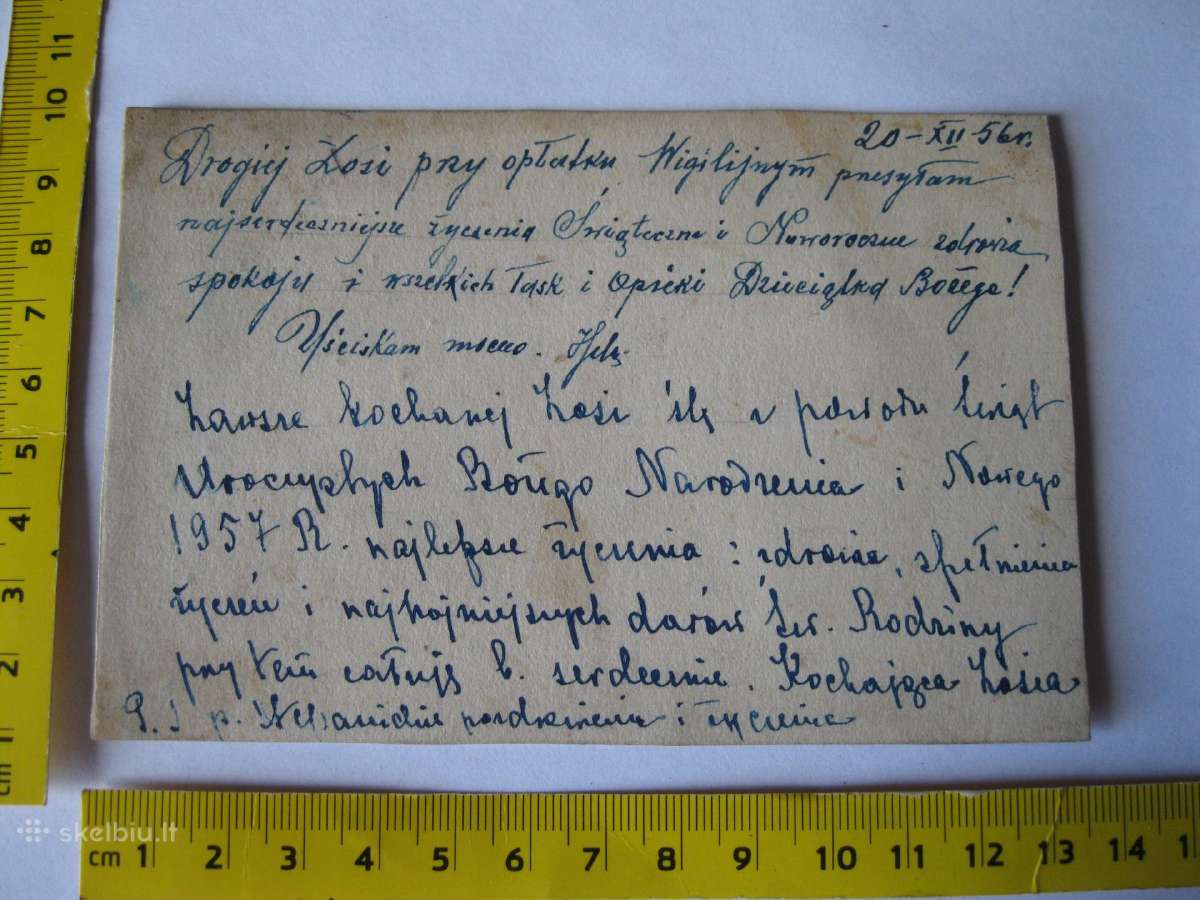 20-XII-56r.
Drogiej Zosi przy opłatku Wigilijnym przesyłam
najserdeczniejsze życzenia Świąteczne i Noworoczne zdrowia
spokoju i wszelkich łask i Opieki Dzieciątka Bożego!
Uściskam mocno. Hela
Zawsze kochanej Zosi ślę z powodu Świąt
Uroczystych Bożego Narodzenia i Nowego
1957 R. najlepsze życzenia: zdrowia, spełnienia
życzeń i najhojniejszych darów Św. Rodziny
przy tem całuję b. serdecznie. Kochająca Zosia
P. S p. pozdrowienia i życzenia
cm 1 2 3 4 5 6 7 8 9 10 11
cm 1 2 3 4 5 6 7 8 9 10 11 12 13 14 15
skelbiu.lt